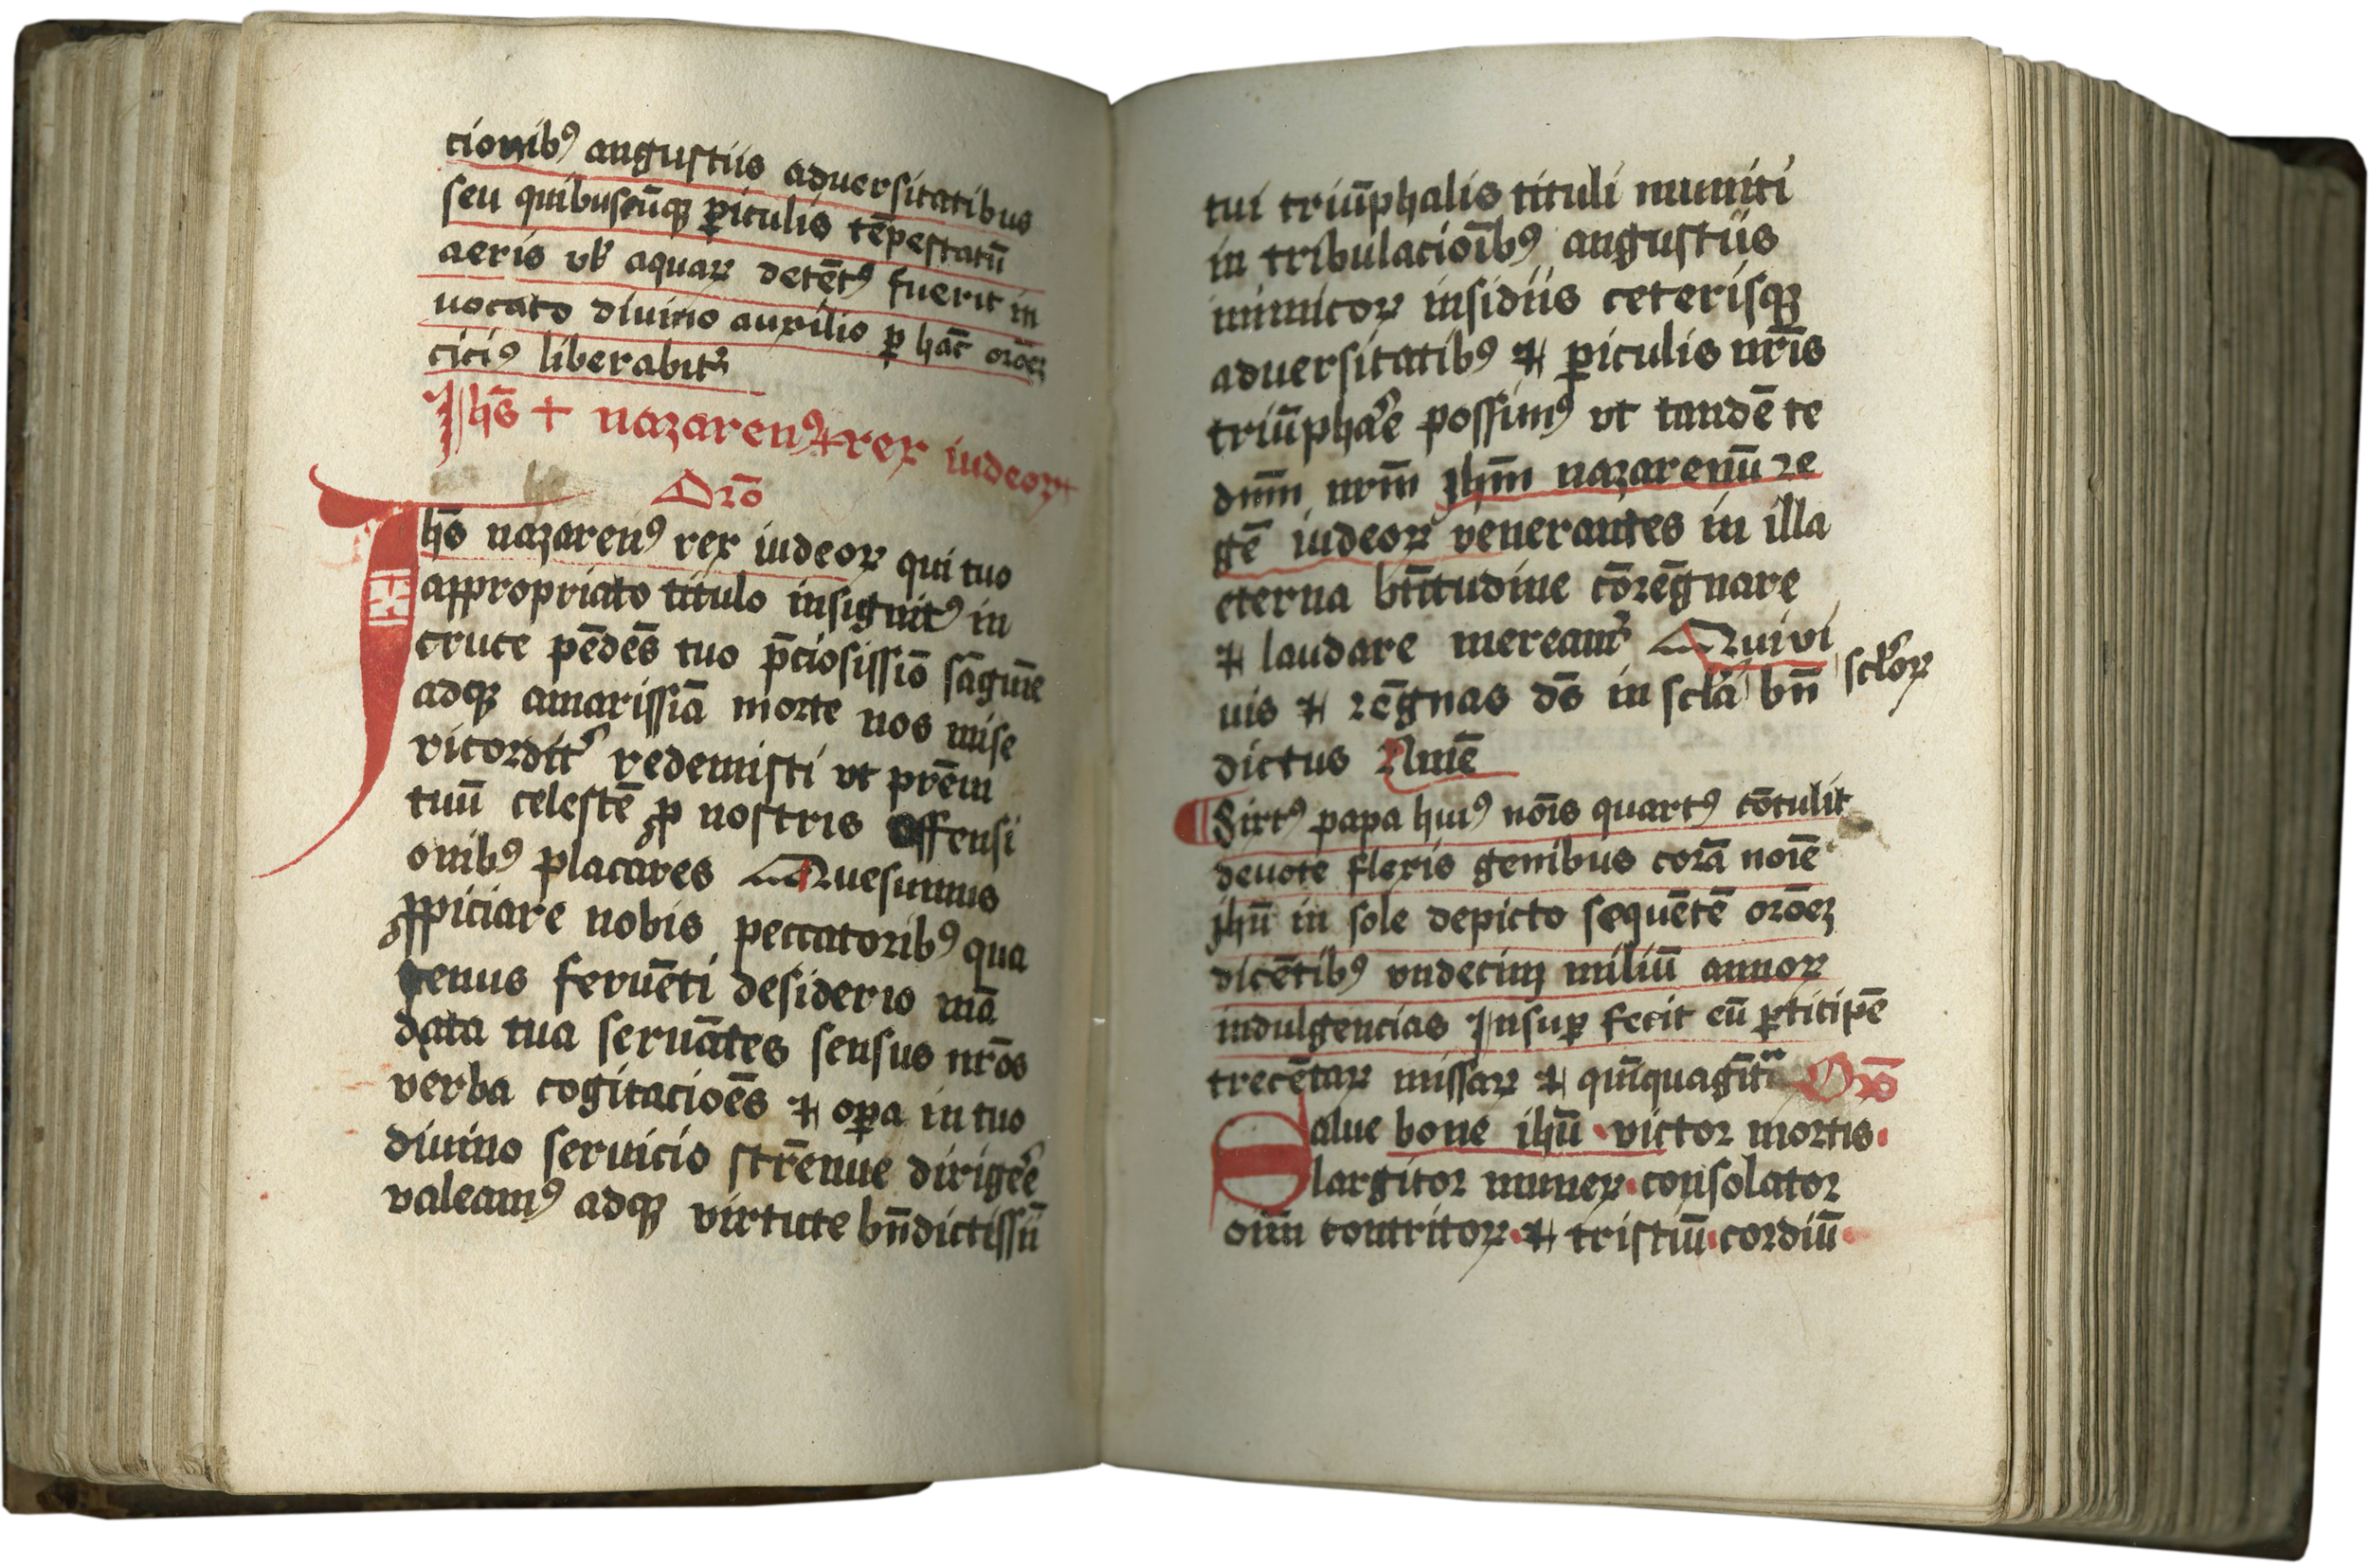 cionibꝰ angustiis aduersitatibus
seu quibuscūqꝫ ꝑiculis tēpestatū
aeris vł aquaꝝ detētꝰ fuerit in
uocato diuino auxilio ꝑ hāc orōeꝫ
ciciꝰ liberabitᷣ
Ihs̄ + nazarenꝰ + rex iudeoꝝ +
Orō
Ihs̄ nazarenꝰ rex iudeoꝝ qui tuo
appropriato titulo insignitꝰ in
cruce pēdēs tuo p̄ciosissīo sāguīe
adqꝫ amarissīa morte nos mise
ricordit᷑ redemisti vt prēm
tuū celestē ꝓ nostris offensi
onibꝰ placares Quesumus
ꝓpiciare nobis peccatoribꝰ qua
tenus feruēti desiderio mā
data tua seruātes sensus nr̄os
verba cogitacioēs ⁊ oꝑa in tuo
diuino seruicio strēnue dirigẽ
valeamꝰ adqꝫ virtute bn̄dictissī
tui triūphalis tituli muniti
in tribulacioībꝰ angustiis
inimicoꝝ insidiis ceterisqꝫ
aduersitatibꝰ ⁊ ꝑiculis nr̄is
triūphar̄e possimꝰ vt tandē te
dnm̄ nrm̄ Jhm̄ nazarenū re
gē iudeoꝝ venerantes in illa
eterna btītudine cōrēgnare
⁊ laudare mereamᷣ Qui vi
uis ⁊ rēgnas ds̄ in scła bn̄ scłoꝝ
dictus Amē
Sixtꝰ papa huiꝰ nōis quartꝰ cōtulit
deuote flexis genibus corā noīe
jhū in sole depicto sequētē orōeꝫ
dicētibꝰ vndecim miliū annoꝝ
indulgencias Insuꝑ fecit eū ꝑticipē
trecētaꝝ missaꝝ ⁊ quīquagīta Orō
Salue bone ihū · victor mortis ·
largitor muneꝝ · consolator
oīm contritoꝝ · ⁊ tristiū · cordiū ·